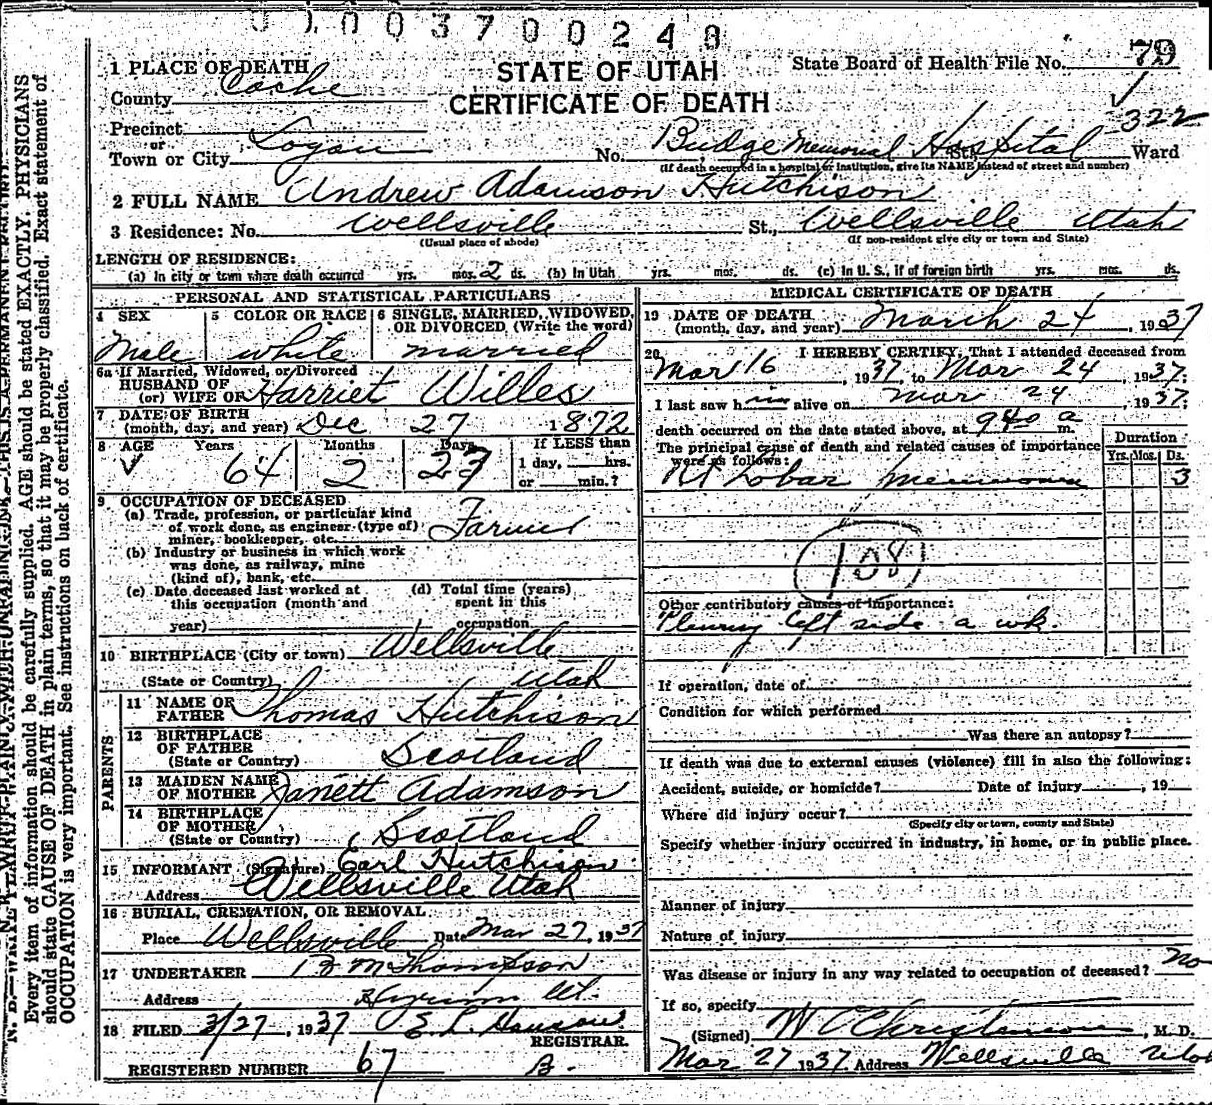 0 1 0 0 3 7 0 0 2 4 8
1 PLACE OF DEATH
County Cache
STATE OF UTAH
CERTIFICATE OF DEATH
State Board of Health File No. 79
322
Precinct
or
Town or City Logan No. Budge Memorial Hospital St., Ward
(If death occurred in a hospital or institution, give its NAME instead of street and number)
2 FULL NAME Andrew Adamson Hutchison
3 Residence: No. Wellsville St., Wellsville Utah
(Usual place of abode) (If non-resident give city or town and State)
LENGTH OF RESIDENCE:
(a) In city or town where death occurred yrs. mos. 2 ds. (b) In Utah yrs. mos. ds. (c) In U. S., if of foreign birth yrs. mos. ds.
PERSONAL AND STATISTICAL PARTICULARS
4 SEX Male
5 COLOR OR RACE white
6 SINGLE, MARRIED, WIDOWED, OR DIVORCED (Write the word) married
6a If Married, Widowed, or Divorced
HUSBAND OF
(or) WIFE OF Harriet Willes
7 DATE OF BIRTH
(month, day, and year) Dec 27 1872
8 AGE Years 64 Months 2 Days 27 If LESS than
1 day, hrs.
or min.?
9 OCCUPATION OF DECEASED
(a) Trade, profession, or particular kind
of work done, as engineer (type of)
miner, bookkeeper, etc. Farmer
(b) Industry or business in which work
was done, as railway, mine
(kind of), bank, etc.
(c) Date deceased last worked at
this occupation (month and
year)
(d) Total time (years)
spent in this
occupation
10 BIRTHPLACE (City or town) Wellsville
(State or Country) Utah
PARENTS
11 NAME OF
FATHER Thomas Hutchison
12 BIRTHPLACE
OF FATHER
(State or Country) Scotland
13 MAIDEN NAME
OF MOTHER Janett Adamson
14 BIRTHPLACE
OF MOTHER
(State or Country) Scotland
15 INFORMANT (Signature) Earl Hutchison
Address Wellsville Utah
16 BURIAL, CREMATION, OR REMOVAL
Place Wellsville Date Mar 27, 1937
17 UNDERTAKER B M Thompson
Address Hyrum Ut.
18 FILED 3/27, 1937 E. L. Hansen
REGISTRAR.
REGISTERED NUMBER 67
MEDICAL CERTIFICATE OF DEATH
19 DATE OF DEATH
(month, day, and year) March 24, 1937
20 I HEREBY CERTIFY, That I attended deceased from
Mar 16, 1937, to Mar 24, 1937;
I last saw him alive on Mar 24, 1937;
death occurred on the date stated above, at 9 40 a m.
The principal cause of death and related causes of importance
were as follows:
Duration
Yrs. Mos. Ds.
Rt Lobar 3
108
Other contributory causes of importance:
Pleurisy left side a wk.
If operation, date of
Condition for which performed
Was there an autopsy?
If death was due to external causes (violence) fill in also the following:
Accident, suicide, or homicide? Date of injury , 19
Where did injury occur?
(Specify city or town, county and State)
Specify whether injury occurred in industry, in home, or in public place.
Manner of injury
Nature of injury
Was disease or injury in any way related to occupation of deceased? no
If so, specify
(Signed) W C Christensen, M. D.
Mar 27 1937. Address Wellsville Utah
Every item of information should be carefully supplied. AGE should be stated EXACTLY. PHYSICIANS
should state CAUSE OF DEATH in plain terms, so that it may be properly classified. Exact statement of
OCCUPATION is very important. See instructions on back of certificate.